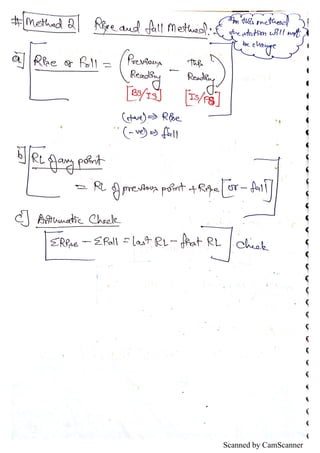 # Method 2
Rise and fall Method:
In this method
the station will not
be change
a] Rise or Fall = (Previous Reading) - (This Reading)
[BS/IS] [IS/FS]
(+ve) => Rise
(-ve) => fall
b] RL of any point
= RL of previous point + Rise [or - fall]
c] Arithmatic Check
ΣRise - ΣFall = Last RL - first RL Check
Scanned by CamScanner